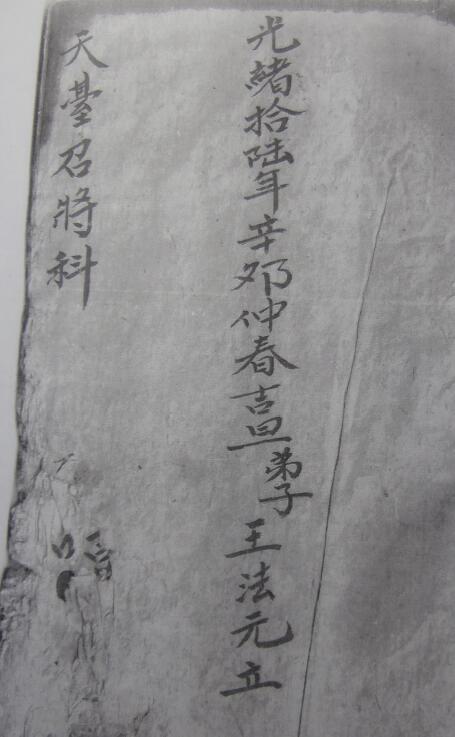 光緒拾陸年辛夘仲春吉旦弟子王法元立
天臺召將科